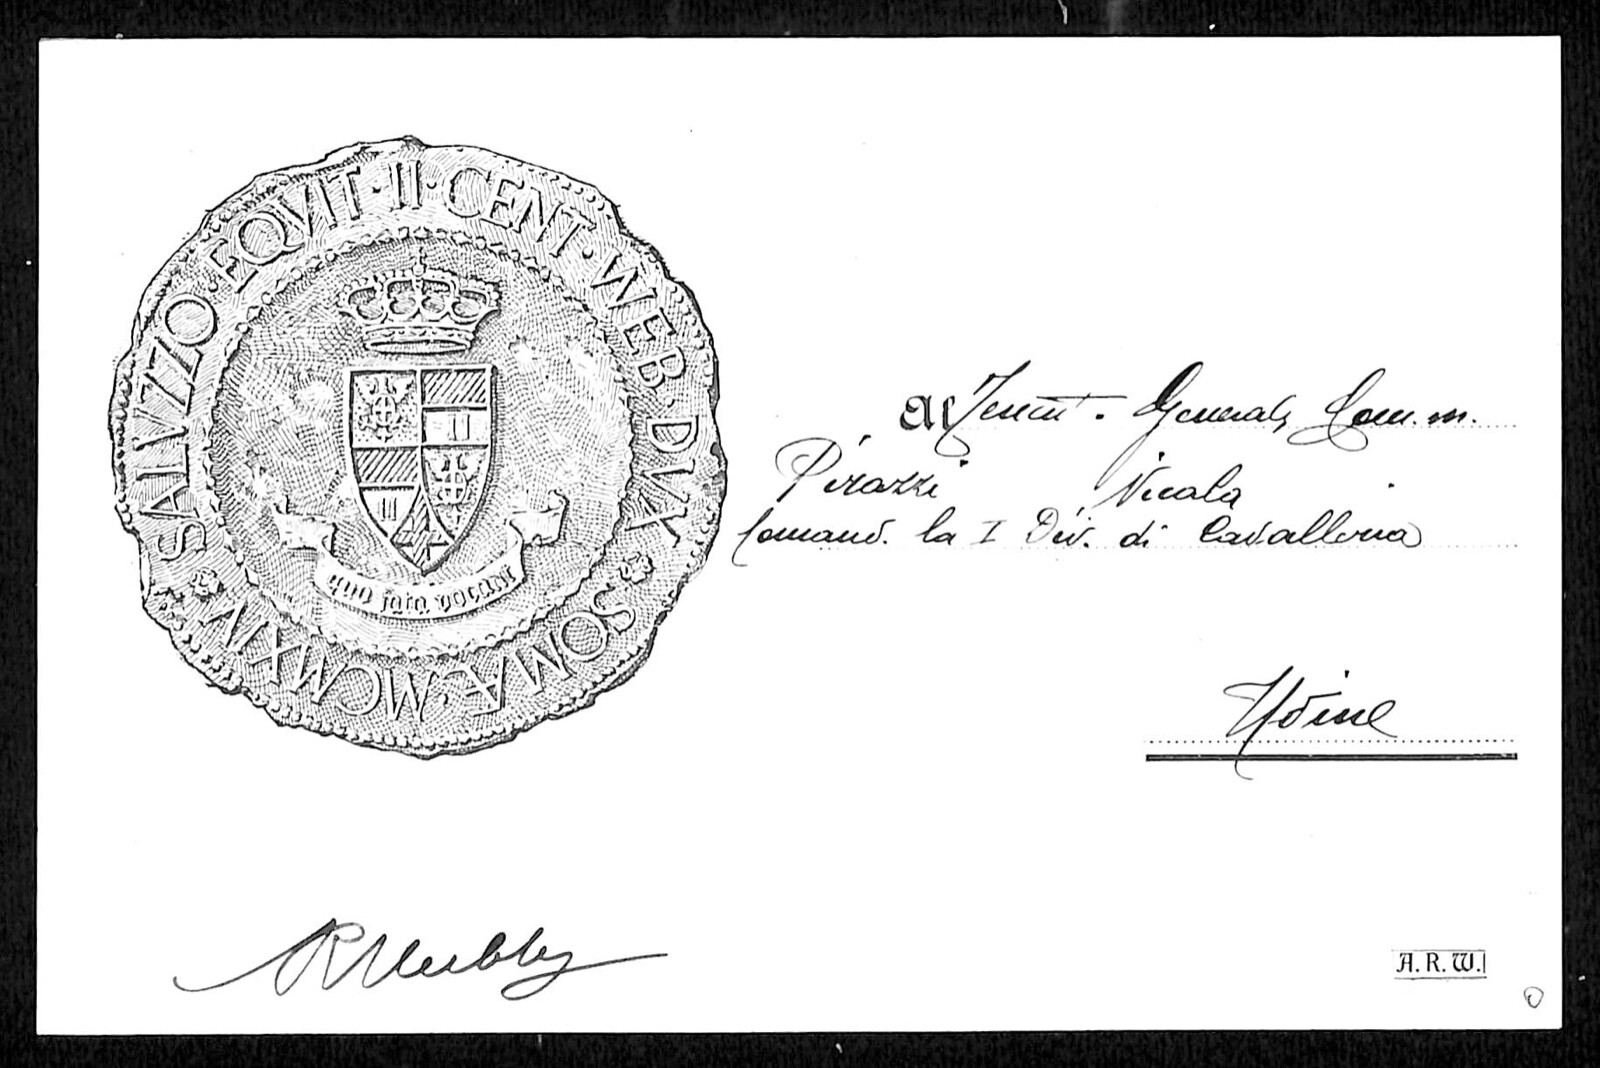 SALVZZO · EQVIT · II · CENT · WEB · DVX
SOMÆ · MCMXIV
II
III
quo fata vocant
al Tenent. Generale Comm.
Pirozzi Nicola
Comand. la I Div. di Cavalleria
Udine
A. R. W.